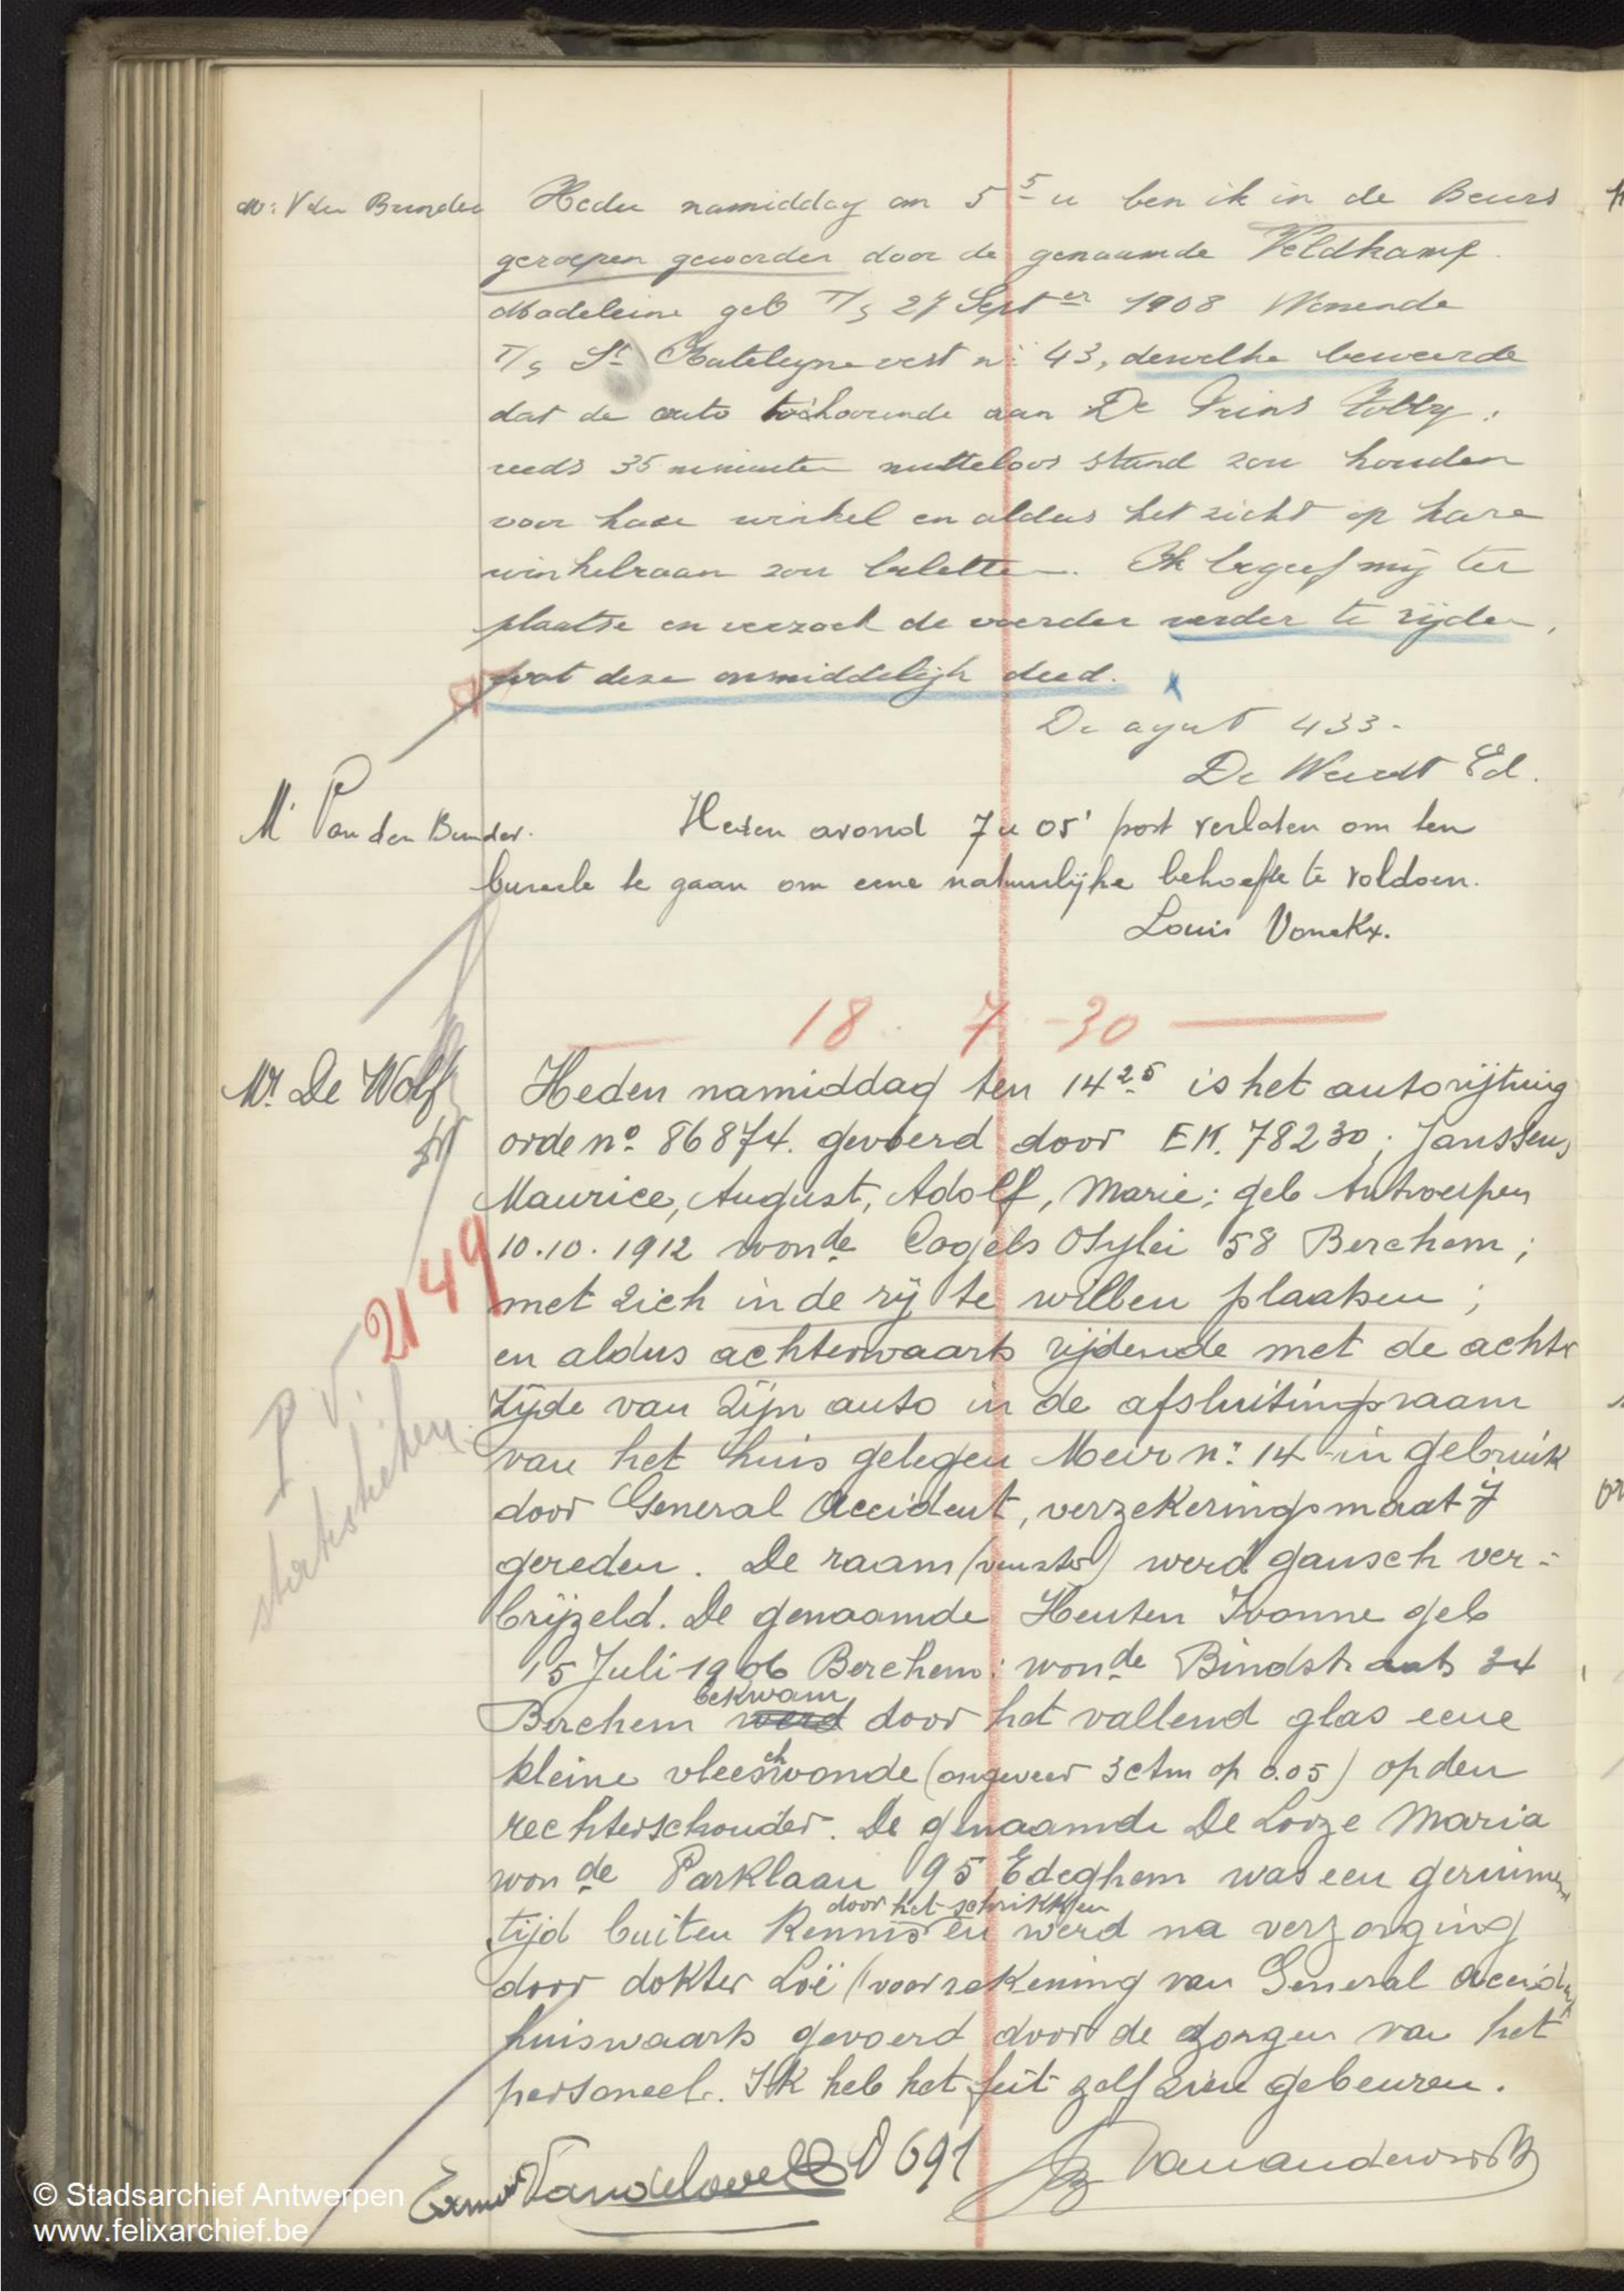 Mr: V den Bunder
Heden namiddag om 5 5 u ben ik in de Beurs
geroepen geworden door de genaamde Veldkamp
Madeleine geb T/s 27 Septer 1908 Wonende
T/s St Katelyne vest n: 43, dewelke beweerde
dat de auto toehoorende aan De Prins
reeds 35 minuten nutteloos stand zou houden
voor hare winkel en aldus het zicht op hare
winkelraam zou beletten. Ik begeef mij ter
plaatse en verzoek de voerder verder te rijden,
wat deze onmiddelijk deed.
De agent 433-
De Weerdt Ed.
Mr Van den Bunder.
Heden avond 7 u 05' post verlaten om ten
bureele te gaan om eene natuurlijke behoefte te voldoen.
Louis Vonckx.
18. 7 -30
Mr. De Wolf
Heden namiddag ten 14 25 is het autorijtuig
orde no. 86874. gevoerd door EK. 78230; Janssens
Maurice, August, Adolf, Marie; geb Antwerpen
10.10.1912 wonde Cogels Osylei 58 Berchem;
2149
met zich in de rij te willen plaatsen;
en aldus achterwaarts rijdende met de achter
zijde van zijn auto in de afsluitingsraam
P.V.
van het huis gelegen Meir n: 14 in gebruik
door General Accident, verzekeringsmaatij
gereden. De raam (venster) werd gansch ver-
brijzeld. De genaamde Heuten Ivonne geb
15 Juli 1906 Berchem; wonde Bindstraat 34
bekwam
Berchem werd door het vallend glas eene
kleine vleeschwonde (ongeveer 3ctm op 0.05) op den
rechterschouder. De genaamde De Looze Maria
wonde Parklaan 95 Edeghem was een geruimen
door het schrikken
tijd buiten kennis en werd na verzorging
door dokter Loë (voor rekening van General Accident
huiswaarts gevoerd door de zorgen van het
personeel. Ik heb het feit zelf zien gebeuren.
691
© Stadsarchief Antwerpen
www.felixarchief.be